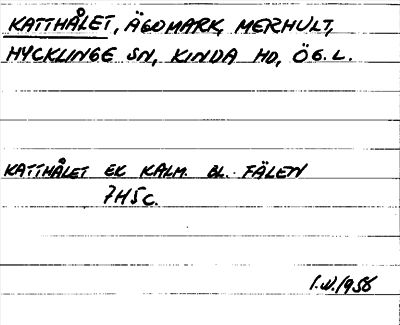 KATTHÅLET, ÄGOMARK, MERHULT,
HYCKLINGE SN, KINDA HD, ÖG. L.
KATTHÅLET EK KALM. BL. FÄLEN
7H5c.
I.W. 1956